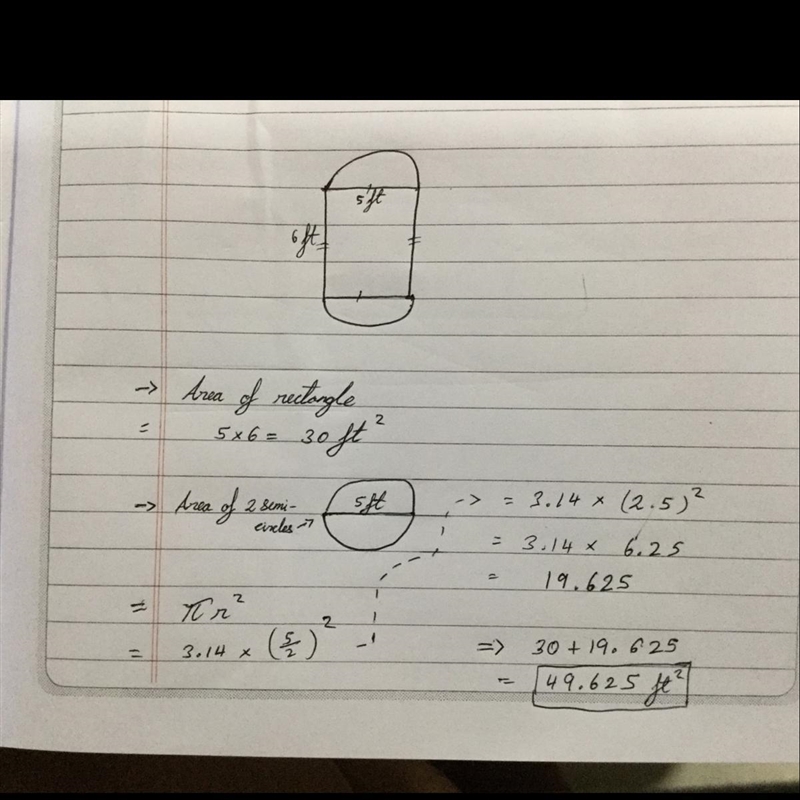 5 ft
6 ft
-> Area of rectangle
= 5 × 6 = 30 ft²
-> Area of 2 semi-
circles ->
5 ft
= πr²
= 3.14 × (5/2)²
-> = 3.14 × (2.5)²
= 3.14 × 6.25
= 19.625
=> 30 + 19.625
= 49.625 ft²